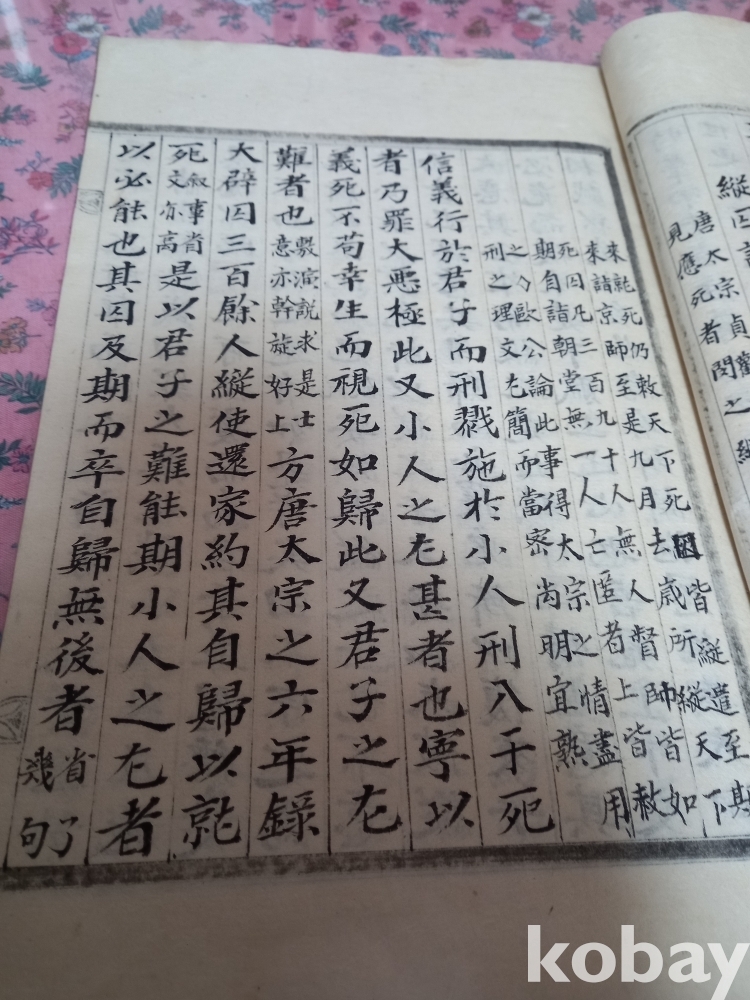 縱囚
唐太宗貞觀
見應死者閔之縱
來就死仍敕天下死囚皆縱遣至期
來詣京師至是九月去歲所縱天下
死囚凡三百九十人無人督帥皆如
期自詣朝堂無一人亡匿者上皆赦
之〇歐公論此事得太宗之情盡用
刑之理文尤簡而當密尚明宜熟
信義行於君子而刑戮施於小人刑入于死
者乃罪大惡極此又小人之尤甚者也寧以
義死不苟幸生而視死如歸此又君子之尤
難者也敷演説求是士意亦幹旋好上方唐太宗之六年錄
大辟囚三百餘人縱使還家約其自歸以就
死叙事省文亦高是以君子之難能期小人之尤者
以必能也其囚及期而卒自歸無後者省了幾句
kobay